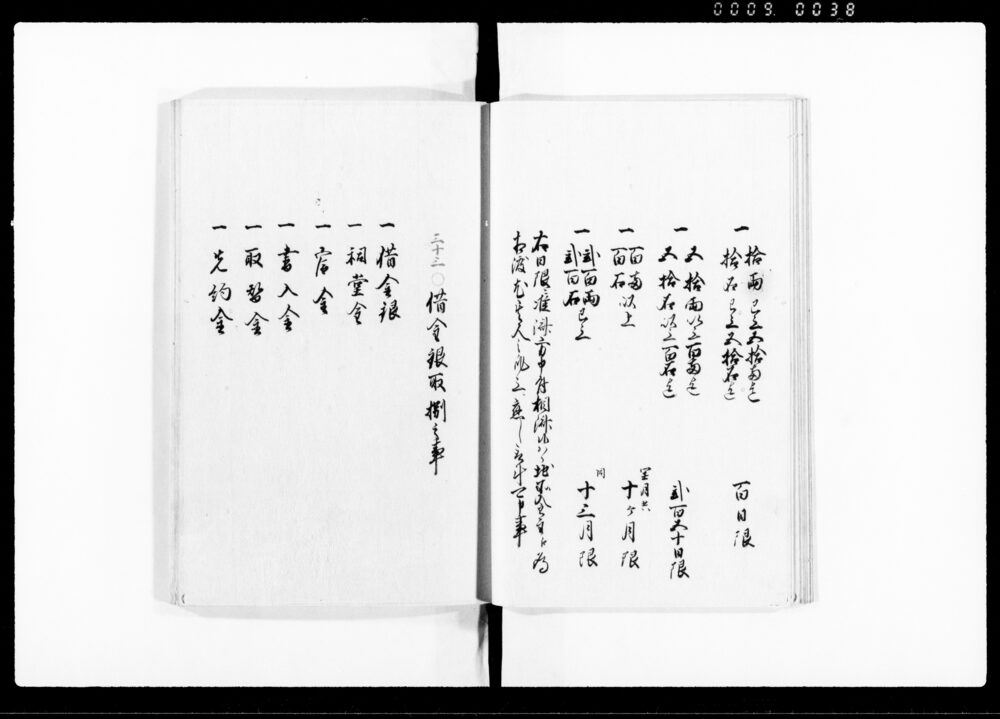 0009 0038
一 拾両已上五拾両迄
拾石已上五拾石迄
百日限
一 五拾両以上百両迄
五拾石以上百石迄
弐百五十日限
一 百両以上
百石
閏月共
十ヶ月限
一 弐百両已上
弐百石
同
十三月限
右日限准済方申付相済候ハヽ地面金主江為
相渡
三十三 ○ 借金銀取捌之事
一 借金銀
一 祠堂金
一 官金
一 書入金
一 取替金
一 先約金